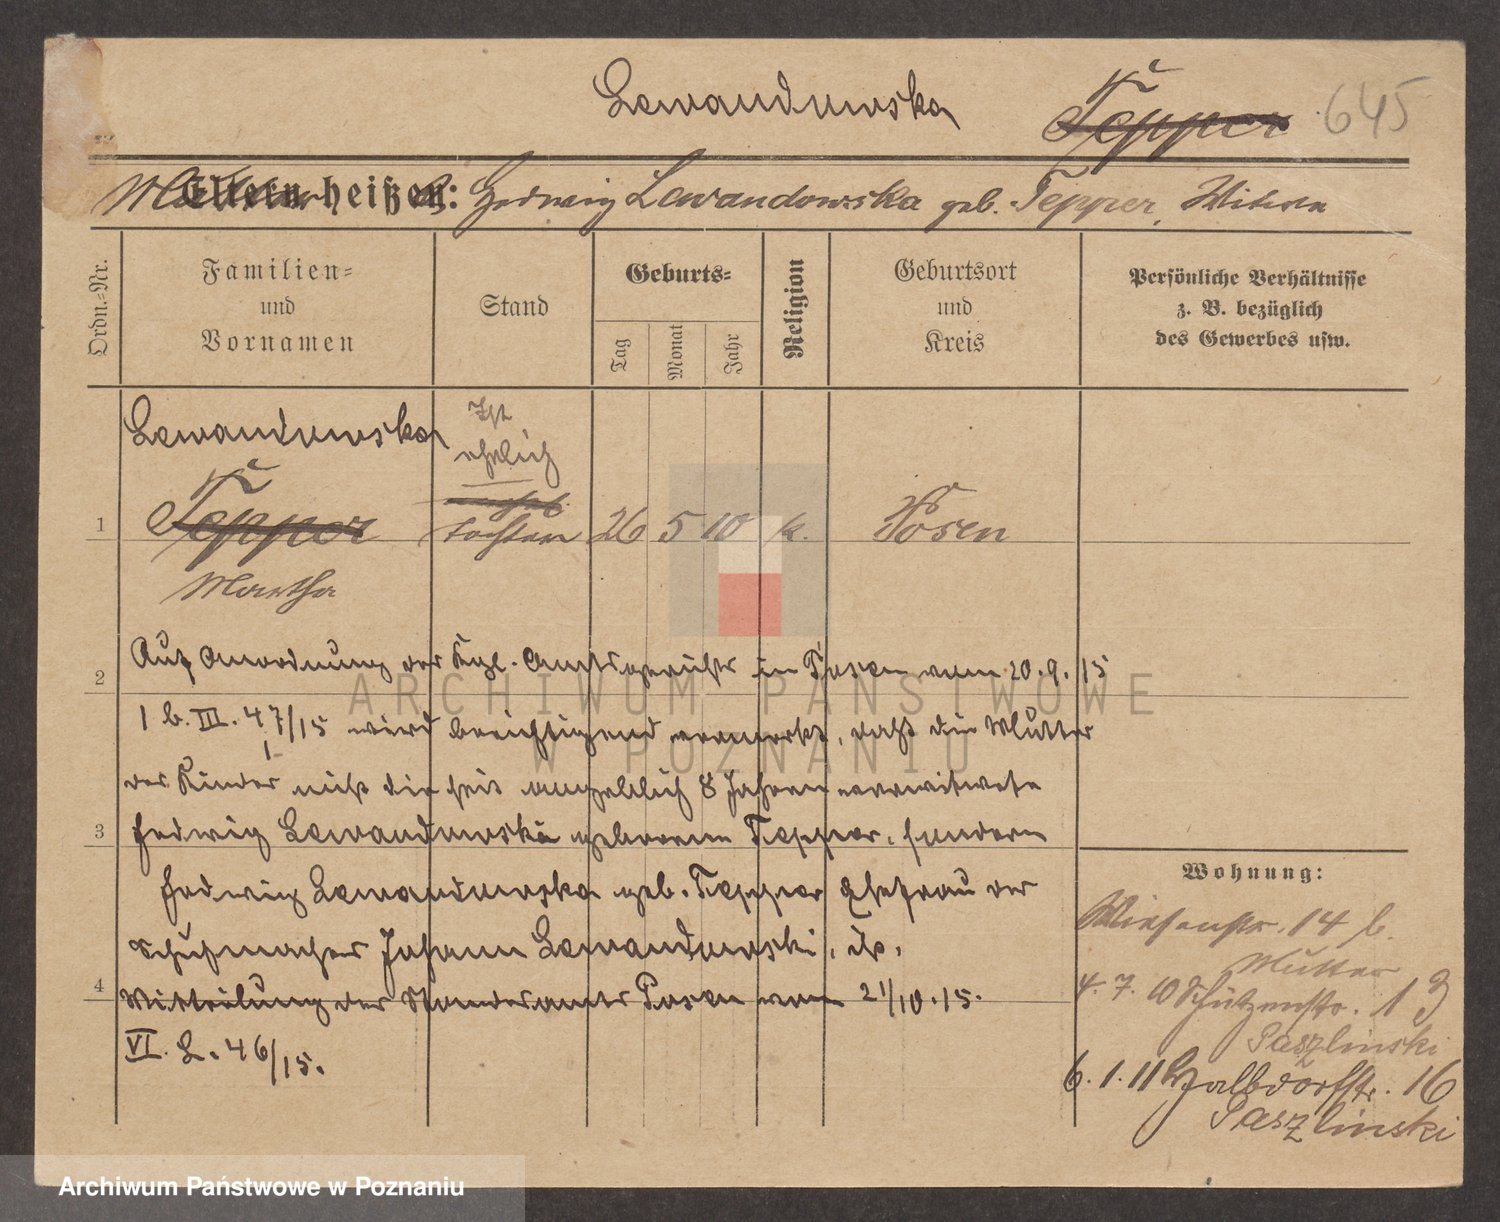 Lewandowska Tepper 645
Eltern heißen: Mutter Hedwig Lewandowska geb. Tepper, Witwe
Ordn.-Nr.
Familien-
und
Vornamen
Stand
Geburts-
Tag
Monat
Jahr
Religion
Geburtsort
und
Kreis
Persönliche Verhältnisse
z. B. bezüglich
des Gewerbes usw.
Lewandowska
Ist
ehelich
1 Tepper unehel. Tochter 26 5 10 k. Posen
Martha
Auf Anordnung des Kgl. Amtsgerichts in Posen vom 20.9.15
2
1 b. III. 47/15 wird berichtigend vermerkt, daß die Mutter
des Kindes nicht die seit angeblich 8 Jahren verwitwete
3 Hedwig Lewandowska geborene Tepper, sondern
Hedwig Lewandowska geb. Tepper Ehefrau des
Schuhmachers Johann Lewandowski, ist.
4 Mitteilung des Standesamts Posen vom 21/10.15.
VI. L. 46/15.
Wohnung:
Wiesenstr. 14 b.
Mutter
4. 7. 10 Schützenstr. 13
Paszlinski
6. 1. 11 Halbdorfstr. 16
Paszlinski
ARCHIWUM PAŃSTWOWE
W POZNANIU
Archiwum Państwowe w Poznaniu